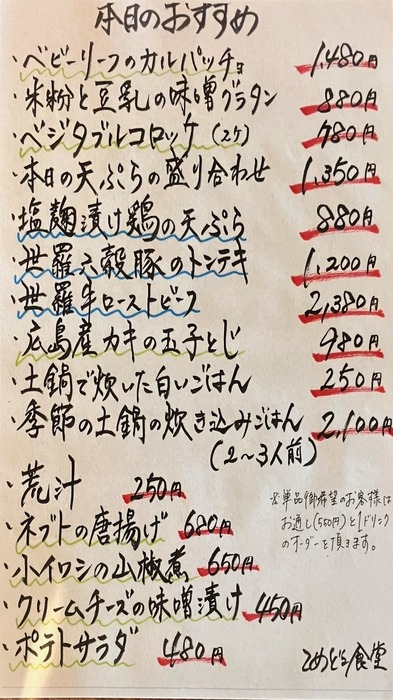 本日のおすすめ
・ベビーリーフのカルパッチョ 1,480円
・米粉と豆乳の味噌グラタン 880円
・ベジタブルコロッケ(2ケ) 780円
・本日の天ぷらの盛り合わせ 1,350円
・塩麹漬け鶏の天ぷら 880円
・世羅六穀豚のトンテキ 1,200円
・世羅牛ローストビーフ 2,380円
・広島産カキの玉子とじ 980円
・土鍋で炊いた白いごはん 250円
・季節の土鍋の炊き込みごはん 2,100円
(2〜3人前)
・荒汁 250円
・ネブトの唐揚げ 680円
・小イワシの山椒煮 650円
・クリームチーズの味噌漬け 450円
・ポテトサラダ 480円
※単品御希望のお客様は
お通し(550円)と1ドリンク
のオーダーを頂きます。
食堂